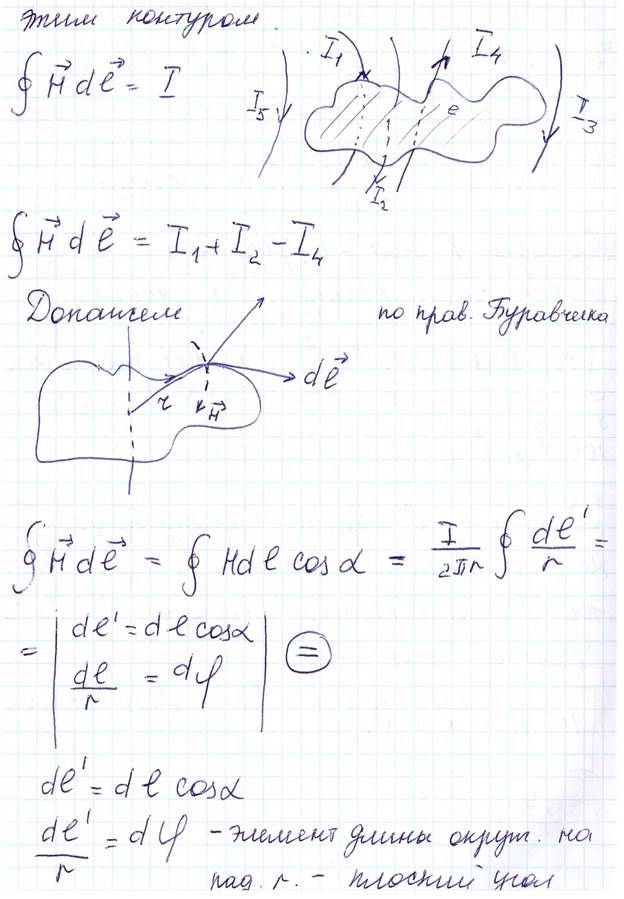 этим контуром.
∮ H⃗ dℓ⃗ = I
I₁
I₄
I₅
e
I₃
I₂
∮ H⃗ dℓ⃗ = I₁ + I₂ − I₄
Докажем
по прав. Буравчика
dℓ⃗
r
H⃗
∮ H⃗ dℓ⃗ = ∮ H dℓ cos α = I/2πr ∮ dℓ'/r =
= | dℓ' = dℓ cosα
dℓ/r = dφ | ⊜
dℓ' = dℓ cosα
dℓ'/r = dφ - элемент длины окруж. на
рад. r. - плоский угол